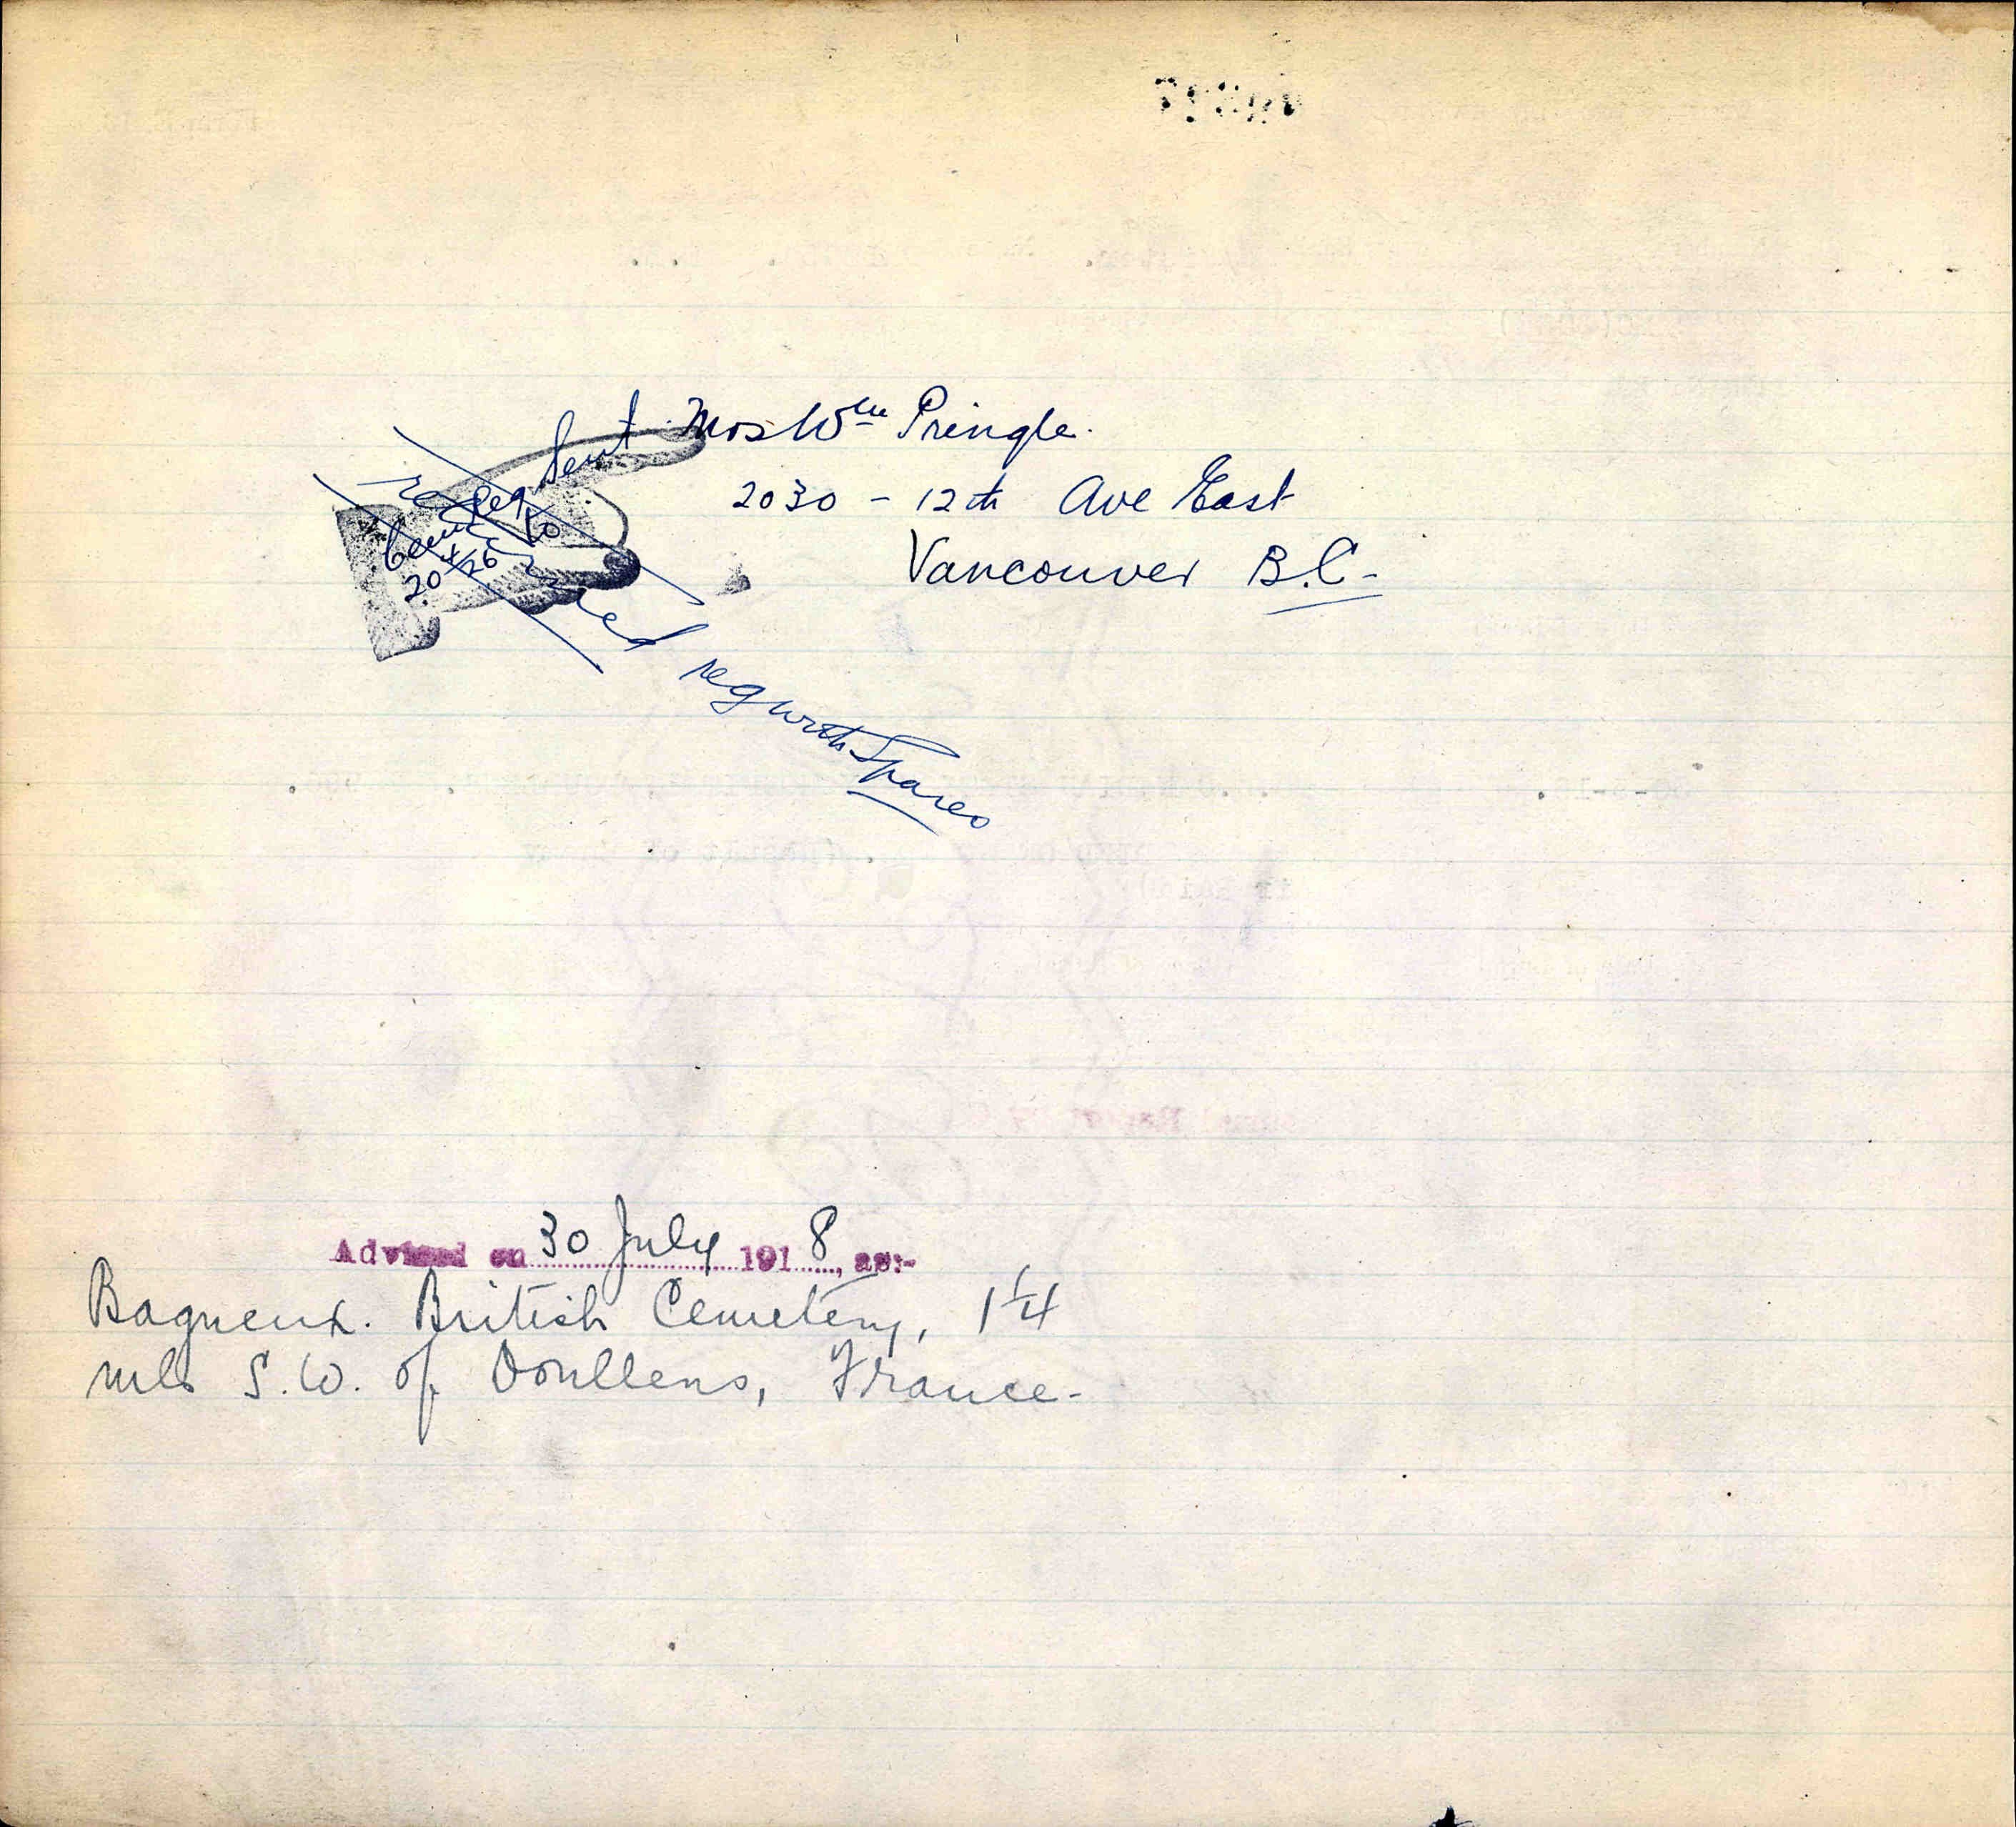 Mrs Wm Pringle.
2030 - 12th Ave East
Vancouver B.C-
Sent
Reg to
Cem
20/4/26
reg with Spares
Advised on 30 July 1918, as:-
Bagneux. British Cemetery, 1¼
mls S.W. of Doullens, France-